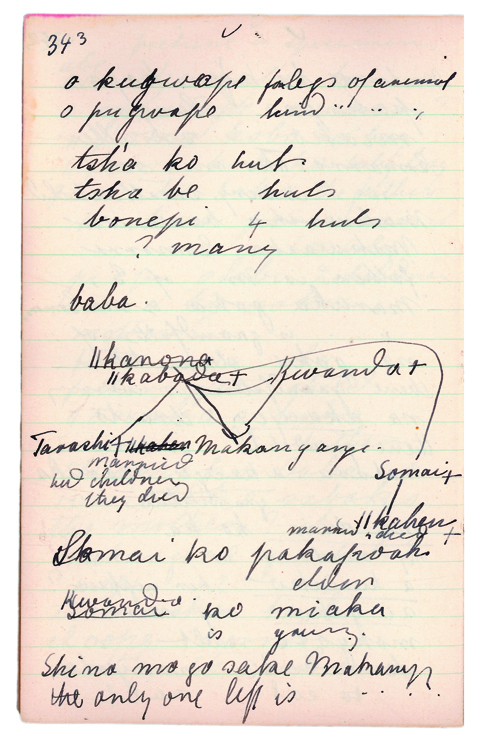 343
o kugwape forelegs of animal
o pugwape hind " " "
tsha ko hut.
tsha be huts
bonepi 4 huts
? many
baba.
||kanona
||kabada + Kwanda +
Tarashi + ||kahen Makanyange.
married Somai +
had children
they died
||kahen
married died +
Somai ko pakapoah
elder
Kwanda
Somai ko miaka
is young.
Shina mogosake Makany
the only one left is